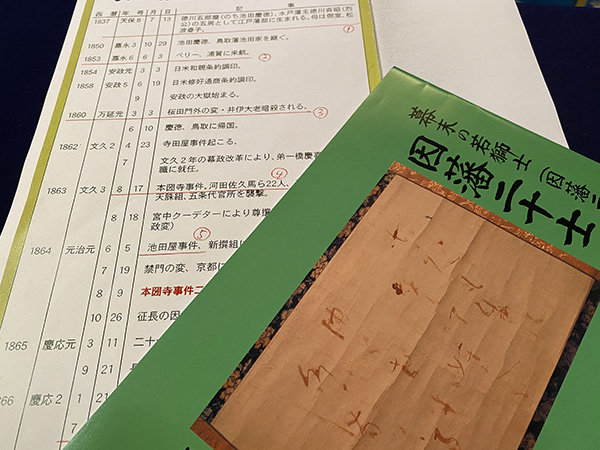 西 暦 年 号 月 日 記 事
1837 天保8 7 13 徳川五郎麿(のち池田慶徳)、水戸藩主徳川斉昭(烈
公)の五男として江戸藩邸に生まれる。母は側室、松
波春子。
①
1850 嘉永3 10 29 池田慶徳、鳥取藩池田家を継ぐ。
1853 嘉永6 6 3 ペリー、浦賀に来航。
②
1854 安政元 3 3 日米和親条約調印。
1858 安政5 6 19 日米修好通商条約調印。
9 安政の大獄始まる。
1860 万延元 3 3 桜田門外の変・井伊大老暗殺される。
③
6 10 慶徳、鳥取に帰国。
1862 文久2 4 23 寺田屋事件起こる。
7 文久2年の幕政改革により、第一橋慶喜
職に就任。
④
1863 文久3 8 17 本圀寺事件。河田佐久馬ら22人、
天誅組、五条代官所を襲撃。
8 18 宮中クーデターにより尊攘
政変)
⑤
1864 元治元 6 5 池田屋事件、新撰組に
7 19 禁門の変、京都に
8 9 本圀寺事件二
10 26 征長の因
1865 慶応元 3 11 二十
9 21
866 慶応2 1 21
7
幕末の若獅士(因藩二
因藩二十士